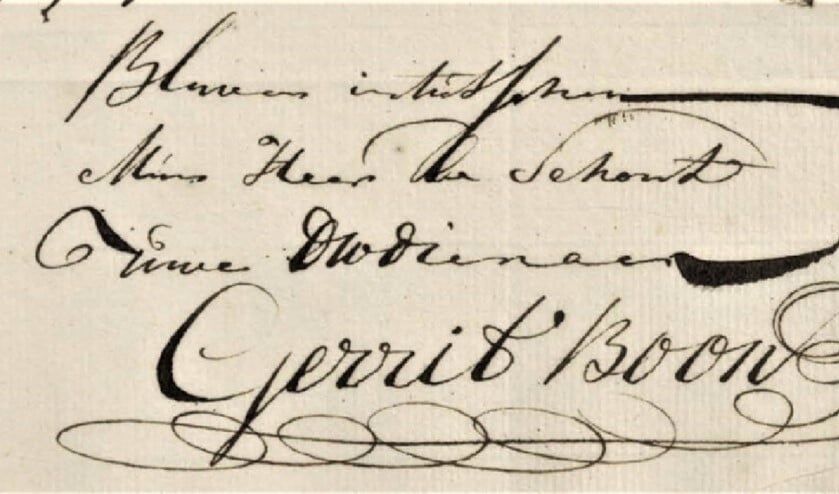 Blüven intusschen
Mijns Heer de Schout
Uwe DWdienaer
Gerrit Boon